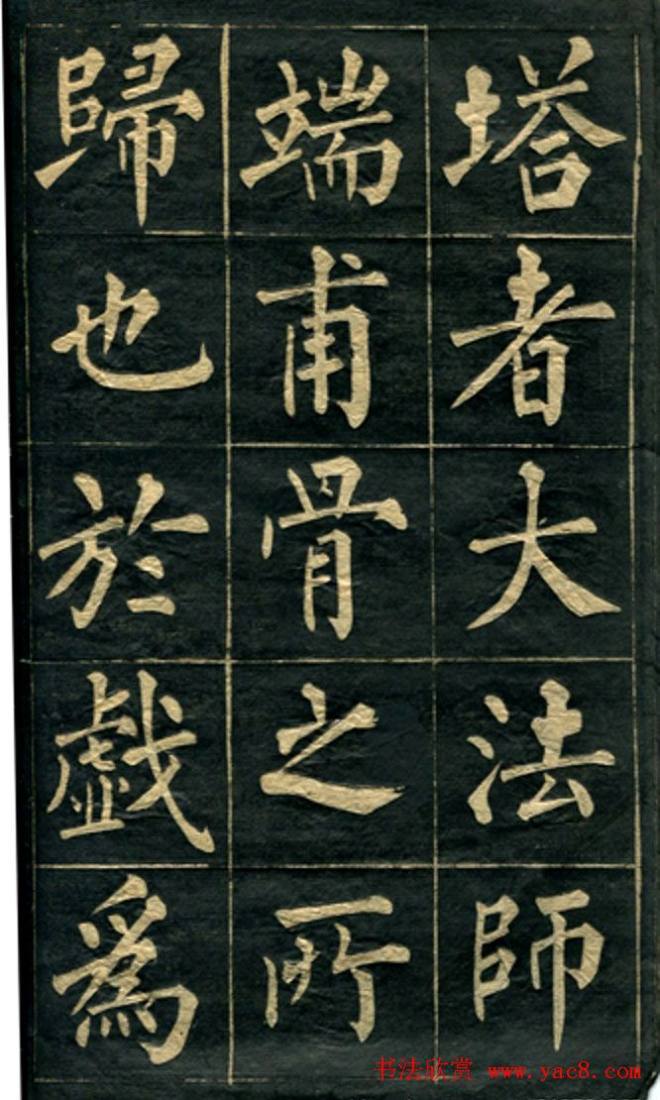 塔者大法師
端甫骨之所
歸也於戱爲
书法欣赏 www.yac8.com